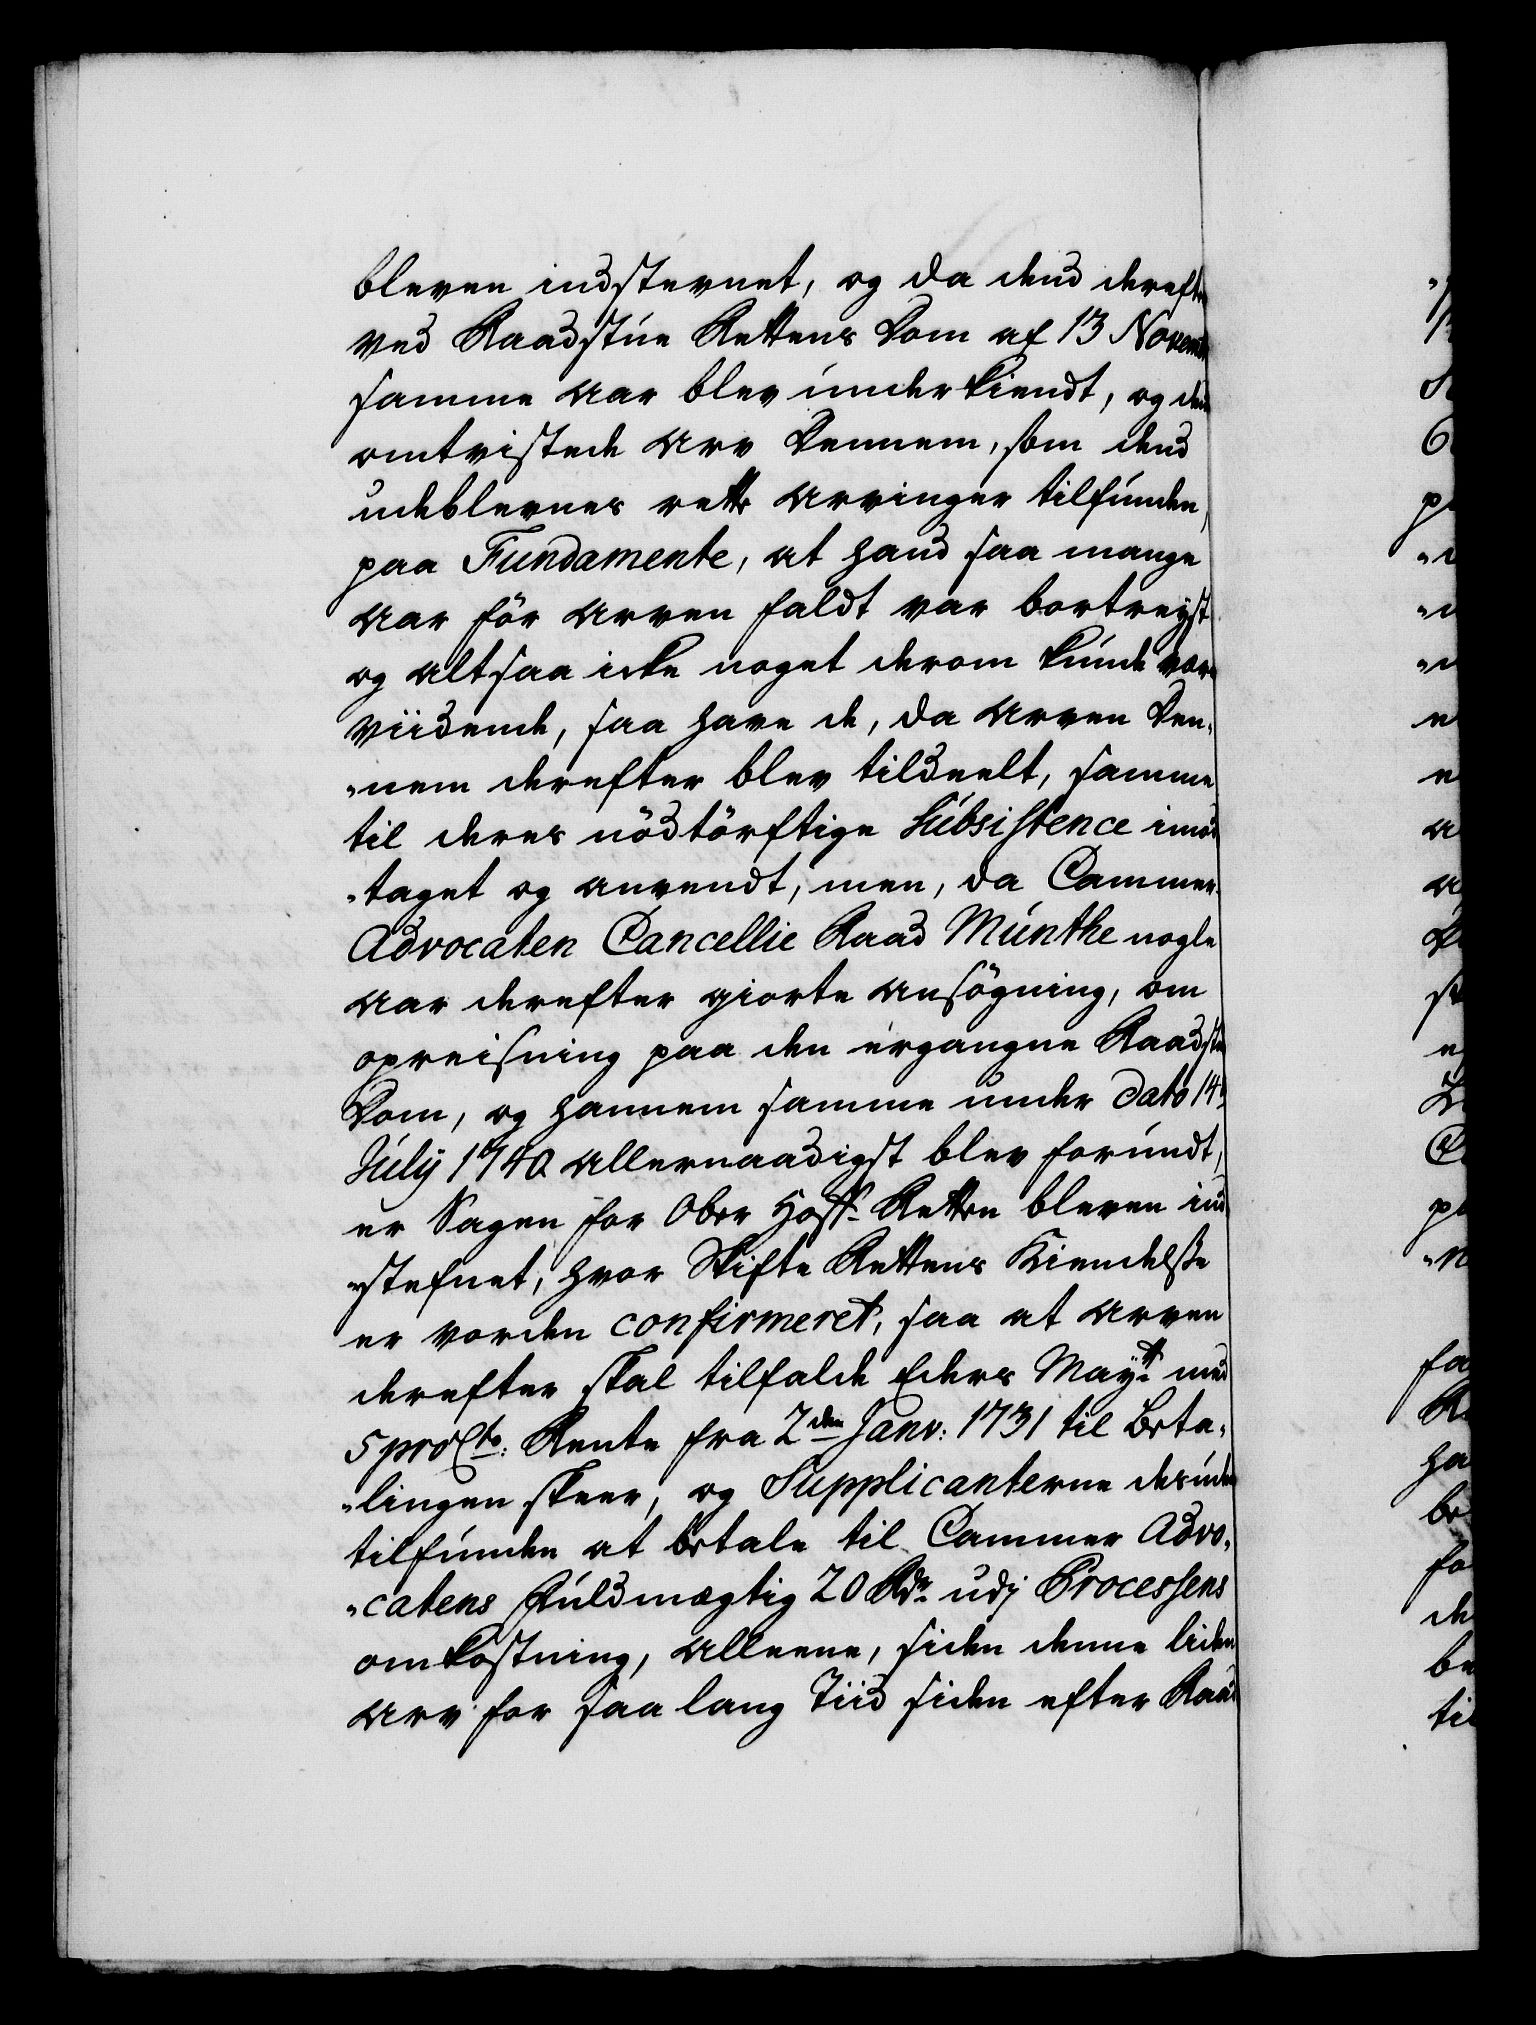 bleven indstevnet, og da dend derefter
ved Raadstue Rettens Dom af 13 Novemb
samme Aar blev underkiendt, og den
omtvistede Arv Dennem, som dend
udeblevnes rette Arvinger tilfunden,
paa Fundamente, at hand saa mange
Aar för Arven faldt var bortreyst
og altsaa icke noget derom kunde være
viidende, saa have de, da Arven Den-
-nem derefter blev tildeelt, samme
til deres nödtörftige Subsistence imod
-taget og anvendt, men, da Cammer
Advocaten Cancellie Raad Munthe nogle
Aar derefter giorte Ansögning, om
opreisning paa den ergangne Raadstue
Dom, og hannem samme under Dato 14de
July 1740 allernaadigst blev forundt,
er Sagen for Ober Hoff- Retten bleven ind
-stefnet, hvor Skifte Rettens Kiendelsse
er vorden confirmeret, saa at Arven
derefter skal tilfalde Eders Maytt med
5 proCto: Rente fra 2den Janv: 1731 til Beta-
-lingen skeer, og Supplicanterne desuden
tilfunden at betale til Cammer Advo-
-catens Fuldmægtig 20 Rdr udj Processens
omkostning, Alleene, siden denne liden
Arv for saa lang Tiid siden efter Raad